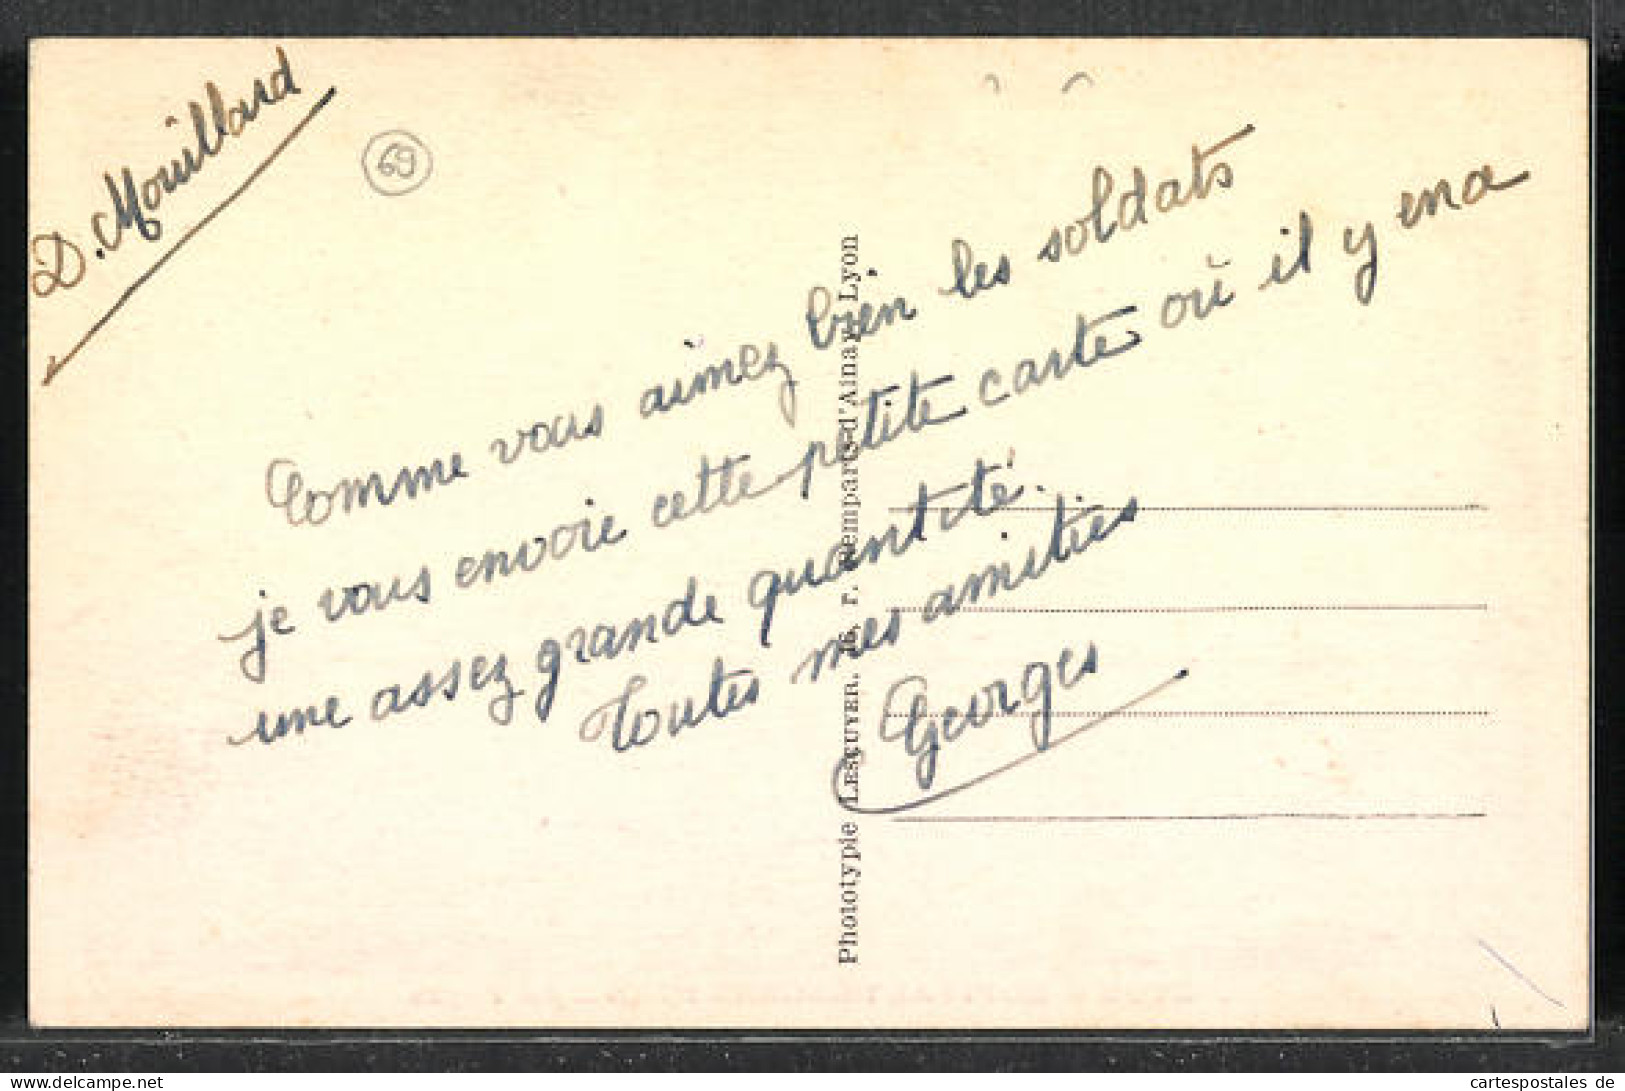 D. Mouillard
69
Comme vous aimez bien les soldats
je vous envoie cette petite carte où il y en a
une assez grande quantité.
Toutes mes amitiés
Georges
Phototypie LESCUYER. 16, r. Remparts-d'Ainay, Lyon
cartespostales de